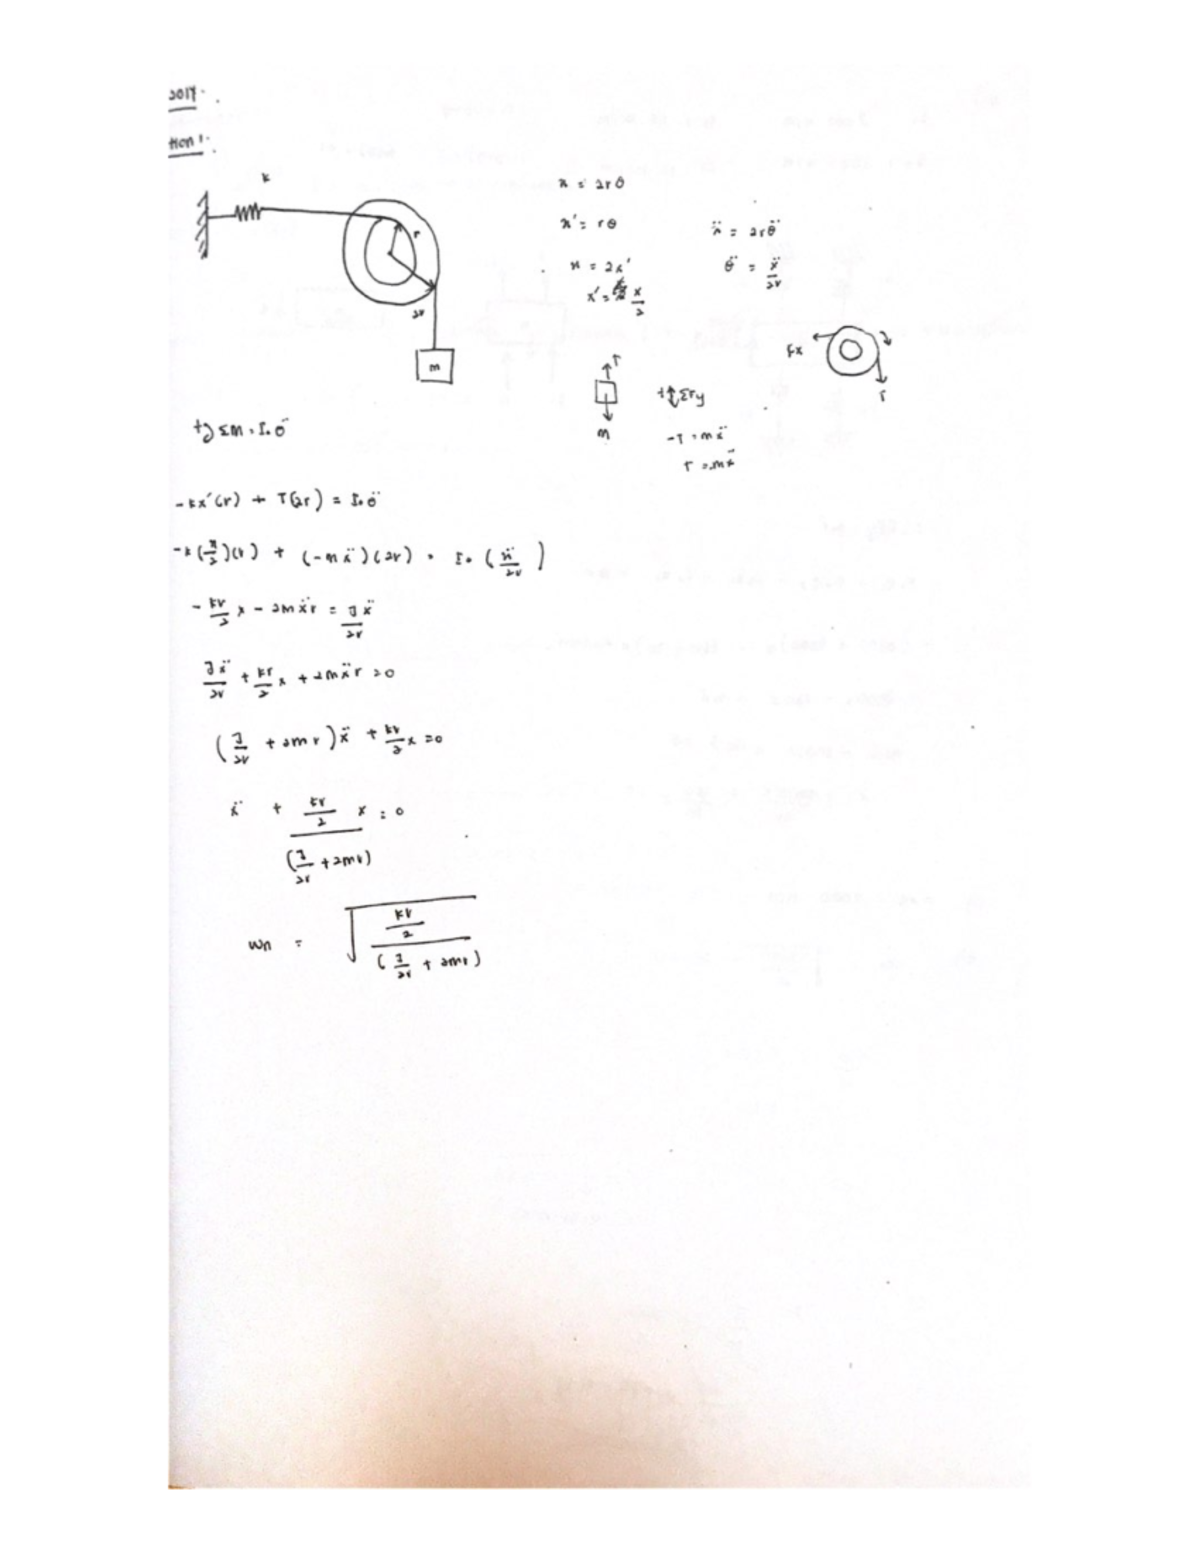 2017.
tion 1.
k
r
2r
m
x = 2rθ
x' = rθ
x = 2x'
x' = x/2
ẍ = 2rθ̈
θ̈ = ẍ/2r
T
m
+↑ΣFy
-T = mẍ
T = -mẍ
kx
T
+↻ ΣM = I₀ θ̈
-kx'(r) + T(2r) = I₀ θ̈
-k(x/2)(r) + (-mẍ)(2r) = I₀ (ẍ/2r)
- kr/2 x - 2mẍr = Jẍ/2r
Jẍ/2r + kr/2 x + 2mẍr = 0
(J/2r + 2mr)ẍ + kr/2 x = 0
ẍ + (kr/2)/(J/2r + 2mr) x = 0
wn = √((kr/2)/(J/2r + 2mr))